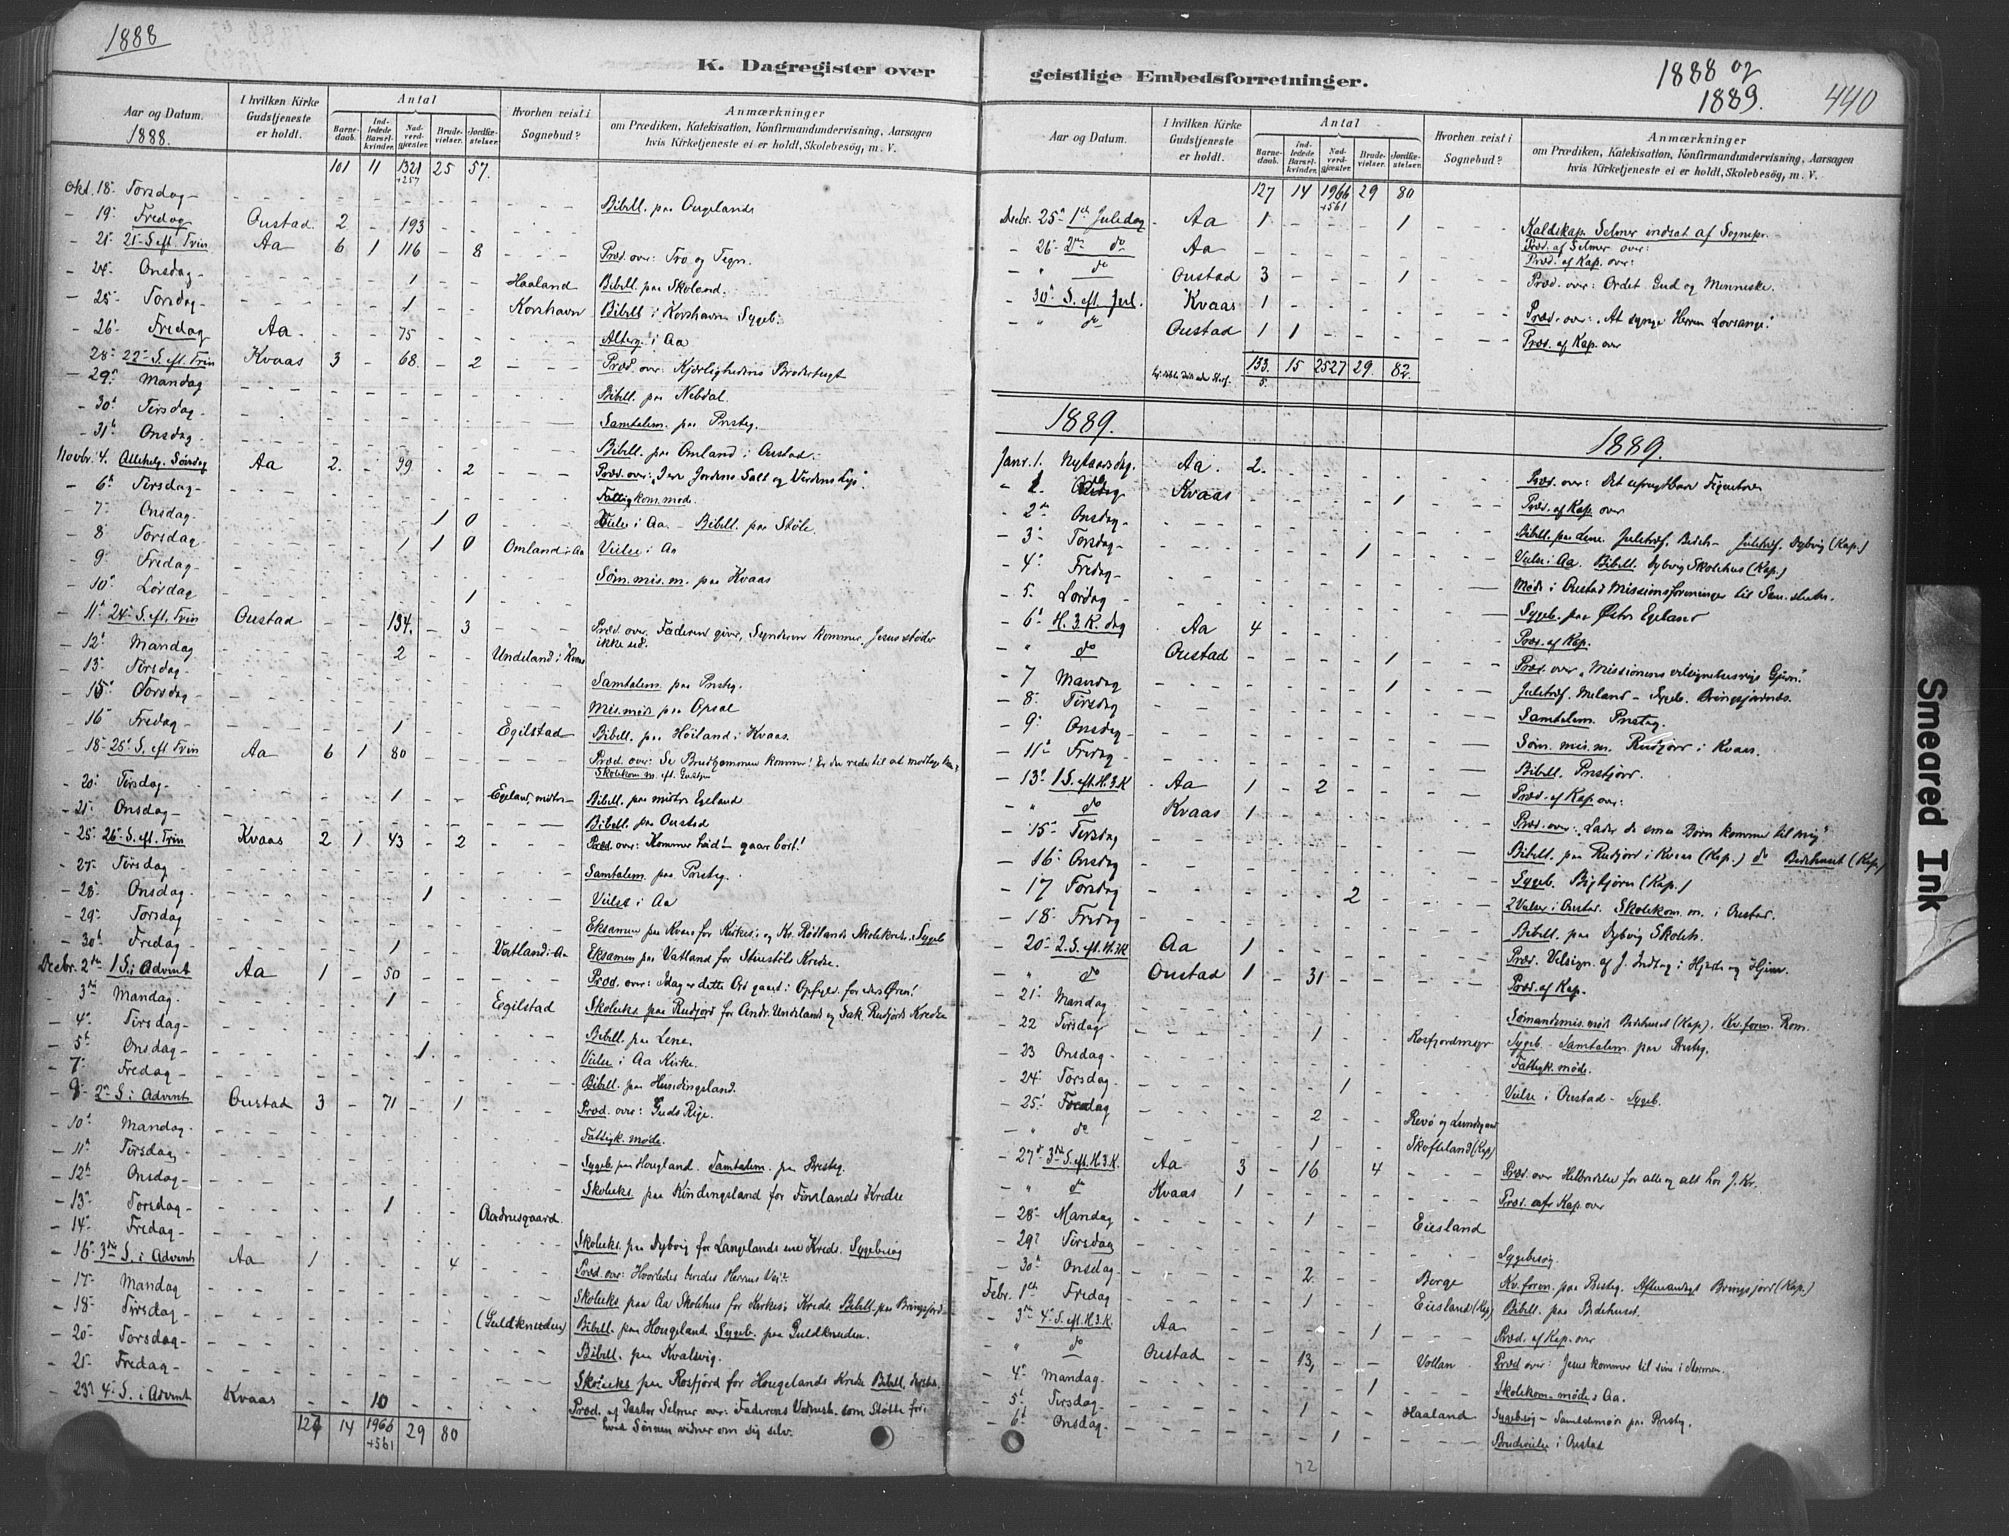 1888
K. Dagregister over
Aar og Datum.
1888.
I hvilken Kirke Gudstjeneste er holdt.
Antal
Barnedaab. Indledede Barselkvinder. Nadverdgjæster. Brudevielser. Jordfæstelser.
Hvorhen reist i Sognebud?
Anmærkninger
om Prædiken, Katekisation, Konfirmandundervisning, Aarsagen
hvis Kirketjeneste ei er holdt, Skolebesøg, m. V.
101 11 1321 25 57.
+257
Okt. 18 Torsdag - Bibell. paa Ougelands
- 19 Fredag Oustad 2 - 193
- 21 21 S. eft. Trin Aa 6 1 116 - 8 Præd. over: Tro og Tegn.
- 24 Onsdag - 1 Haaland Bibell. paa Skoland.
- 25 Torsdag - 1 Korshavn Bibell. i Korshavn Sygeb.
- 26 Fredag Aa 75 Alterg. i Aa
- 28 22 S. eft. Trin Kvaas 3 - 68 - 2 Præd. over: Kjærlighedens
- 29 Mandag Bibell. paa Nebdal.
- 30 Tirsdag - Samtalem. paa Prsteg.
- 31 Onsdag - Bibell. paa Omland i Oustad.
Novbr. 4. Allehelg. Søndag Aa 2. - 99 - 2 Præd. over: Jere Jordens Salt og Verdens Lys.
- 6 Tirsdag - Fattigkom. møde.
- 7 Onsdag. 1 0 Vielse i Aa - Bibell. paa Støle.
- 8 Torsdag 1 1 0 Omland i Aa Vielse i Aa
- 9 Fredag - Søm. mis. m. paa Kvaas
- 10 Lørdag 1
- 11 24 S. eft. Trin Oustad 134. - 3 Præd. over: Faderen giver, Synderen kommer, Jesus støder
ikke ud.
- 12 Mandag 2 Undeland i Kvaas
- 13 Tirsdag - Samtalem. paa Prsteg.
- 15 Torsdag - Mis. mød paa Opsal
- 16 Fredag - 1 Egilstad Bibell. paa Høiland i Kvaas.
- 18 25 S. eft Trin Aa 6 1 80 Præd. over: Se Brudgommen kommer! Er du rede til at modtage
Skolekom m. eft. Gudstjen
- 20 Tirsdag - 1 Egeland, midtre - Bibell. paa midtre Egeland
- 21 Onsdag - Bibell. paa Oustad
- 25 26 S. eft. Trin Kvaas 2 1 43 - 2 Præd. over: Kommer hid! - gaar bort!
- 27 Tirsdag - Samtalem. paa Prsteg.
- 28 Onsdag - 1 Vielse i Aa
- 29 Torsdag Eksamen paa Kvaas for Kirkes og Kr. Rødlands Skolekreds. Sygeb
- 30 Fredag 1 Vatland i Aa Eksamen paa Vatland for Kreds.
Decbr. 2 1 S. i Advent Aa 1 - 50 Præd. over: Idag er dette Ord gaaet i Opfyld. for eders Øren!
- 3 Mandag - 1 Egilstad Skoleeks paa Rudjord for Andr. Undelands og Sak. Rudjords Kredse
- 4 Tirsdag - Bibell. paa Lene.
- 5 Onsdag - 1. Vielse i Aa Kirke.
- 7 Fredag - Bibell. paa Husdingsland.
- 9 2 S. i Advent Oustad 3 - 71 - 1 Præd. over: Guds Rige.
- 10 Mandag - Fattigk. møde.
- 11 Tirsdag Sygeb. paa Hougland. Samtalem. paa Presteg.
- 12 Onsdag - Skoleeks paa Kindingsland for Finlands Kredse
- 13 Torsdag - 1 Aadnesgaard.
- 14 Fredag - Skoleeks. paa Dybvig for Langelands ene Kreds. Sygebesøg
- 16 3 S. i Advent Aa 1 4 Præd. over: Hvorledes beredes Herrens Vei?
- 17 Mandag Skoleeks paa Aa Skolehus for Kirkes Kreds. Bibell. paa Bringsjord
- 18 Tirsdag - (Guldknuden) Bibell. paa Hougeland Sygeb. paa Guldknuden.
- 20 Torsdag - Bibell. paa Kvalsvig.
- 21 Fredag - Skoleeks paa Rosfjord for Hougelands Kreds Bibell.
- 23 4 S. i Advent Kvaas - - 10 Præd. af Pastor Selmer over: Faderens Vidnesb. som Støtte for
hvad Sønnen vidner om sig selv.
127 14 1966 29 80
+561
geistlige Embedsforretninger.
1888 og
1889.
440
Aar og Datum.
I hvilken Kirke Gudstjeneste er holdt.
Antal
Barnedaab. Indledede Barselkvinder. Nadverdgjæster. Brudevielser. Jordfæstelser.
Hvorhen reist i Sognebud?
Anmærkninger
om Prædiken, Katekisation, Konfirmandundervisning, Aarsagen
hvis Kirketjeneste ei er holdt, Skolebesøg, m. V.
127 14 1966 29 80
+561
Decbr. 25 1 Juledag - Aa 1 1 Kaldskap. Selmer indsat af Sognepr.
Præd. af Selmer over:
- 26 2 do Aa Præd. af Kap. over:
- " do Oustad 3 1 Præd. over: Ordet Gud og Menneske.
- 30 S. eft. Jul. Kvaas 1 Præd. over: At synge Herren Lovsange!
- " do Oustad 1 1 Præd. af Kap. over
133. 15 2527 29. 82.
5.
1889.
1889.
Janr. 1. Nytaarsdag. Aa. 2. Præd. over: Det ufrugtbare Figentræ
- 1. do Kvaas 1 Præd. af Kap. over
- 2 Onsdag - Bibell. paa Lene. Juletræf. Bedeh - Juletræf. Dybvig (Kap.)
- 3 Torsdag - 1 Vielse i Aa. Bibell. Dybvig Skolehus (Kap.)
- 4 Fredag - Møde i Oustad Missionsforeninger
- 5. Lørdag - Sygeb. paa Østre Egeland
- 6 H. 3. K. dag Aa 4 Præd. af Kap.
- " do Oustad 1 Præd. over "Missionens velsignelsesrige Gjern."
- 7 Mandag 1 Juletræf. Meland - Sygeb. Bringsjordnes.
- 8 Tirsdag Samtalem. Prsteg.
- 9 Onsdag - Søm. mis. m. Rudjord i Kvaas.
- 11 Fredag - Bibell. Prstjord.
- 13 1 S. eft. H. 3. K Aa 1 - 2 Præd. af Kap. over:
- " do Kvaas 1 Præd. over: "Lader de smaa Børn komme til mig"
- 15 Tirsdag Bibell. paa Rudjord i Kvaas (Kap.) do Bedehuset (Kap.)
- 16 Onsdag Sygeb. Bigbjørn (Kap.)
- 17 Torsdag 2 2 Vielser i Oustad. Skolekom. m. i Oustad.
- 18 Fredag - Bibell. paa Dybvig Skoleh.
- 20 2. S. eft. H. 3. K Aa 1 Præd. Velsign. af J. Indtog i Hjerte og Hjem.
- " do Oustad 1 - 31 Præd. af Kap.
- 21 Mandag Sømandsmis. møde Bedehuset (Kap.). Kv. foren. Rom.
- 22 Tirsdag 1 Rosfjordmyr Sygeb. - Samtalem. paa Prsteg.
- 23 Onsdag - Fattigk. møde.
- 24 Torsdag - 1 Vielse i Oustad - Sygeb.
- 25 Fredag 2 Revø og
- " do 1 Skofteland (Kap)
- 27 3 S. eft. H. 3. K. Aa 3 - 16 - 4 Præd. over Helbredelse for alle og alt hos J. Kr.
- " do Kvaas 1 Præd. af Kap. over
- 28 Mandag 1 Eiesland
- 29 Tirsdag Sygebesøg
- 30 Onsdag - 2 Berge Kv. foren. paa Prsteg. Bringsjord (Kap.)
Febr. 1 Fredag 1 Eiesland (Kap) Bibell. paa Bedehuset.
- 3 4 S. eft. H. 3. K. Aa 1 Præd. af Kap. over
" do Oustad 13, Vollan Præd over: Jesus kommer til sine i Stormen.
- 4 Mandag. 1 Skolekom. møde i Aa.
- 5 Tirsdag - 1 Haaland Sygebesøg - Samtalemøde paa Prsteg.
- 6 Onsdag - 1 Brudevielse i Oustad
72
Smeared Ink